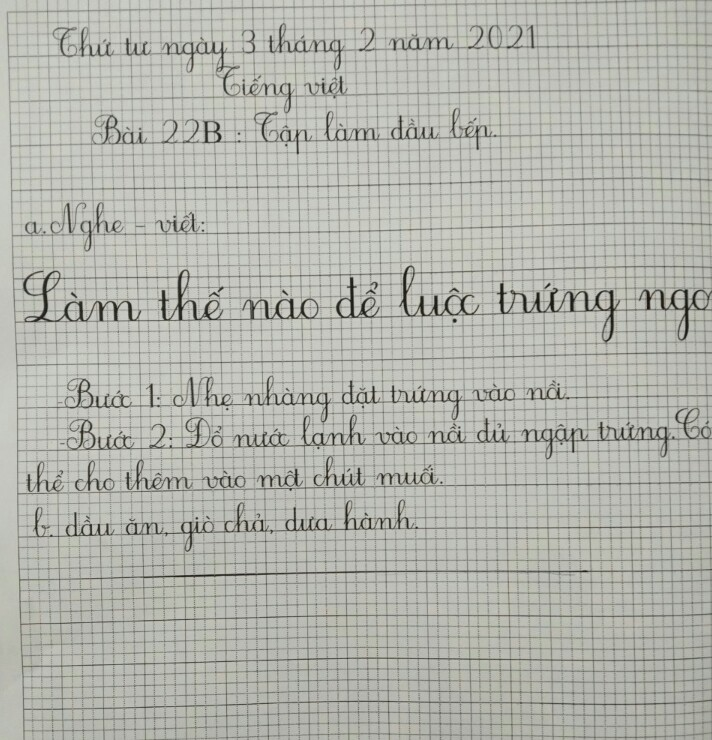 Thứ tư ngày 3 tháng 2 năm 2021
Tiếng việt
Bài 22B : Tập làm đầu bếp.
a. Nghe - viết:
Làm thế nào để luộc trứng ngo
Bước 1: Nhẹ nhàng đặt trứng vào nồi.
-Bước 2: Đổ nước lạnh vào nồi đủ ngập trứng. Có
thể cho thêm vào một chút muối.
b. dầu ăn, giò chả, dưa hành.